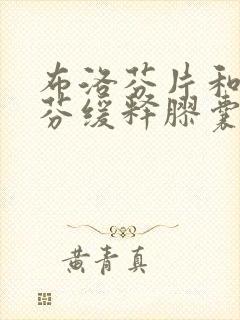 布洛芬片和
芬缓释胶囊
黄青真